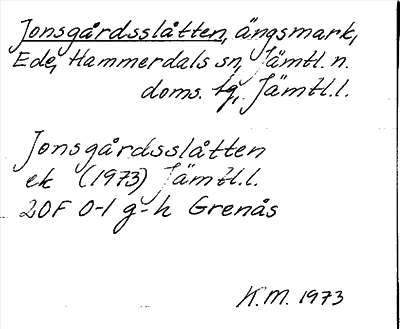 Jonsgårdsslåtten, ängsmark,
Ede, Hammerdals sn, Jämtl. n.
doms. tg, Jämtl.l.
Jonsgårdsslåtten
ek (1973) Jämtl.l.
20F 0-1 g-h Grenås
K.M. 1973